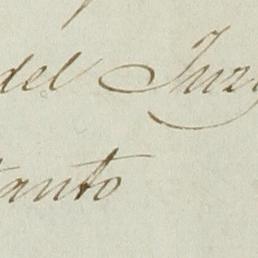 del Juzg
tanto